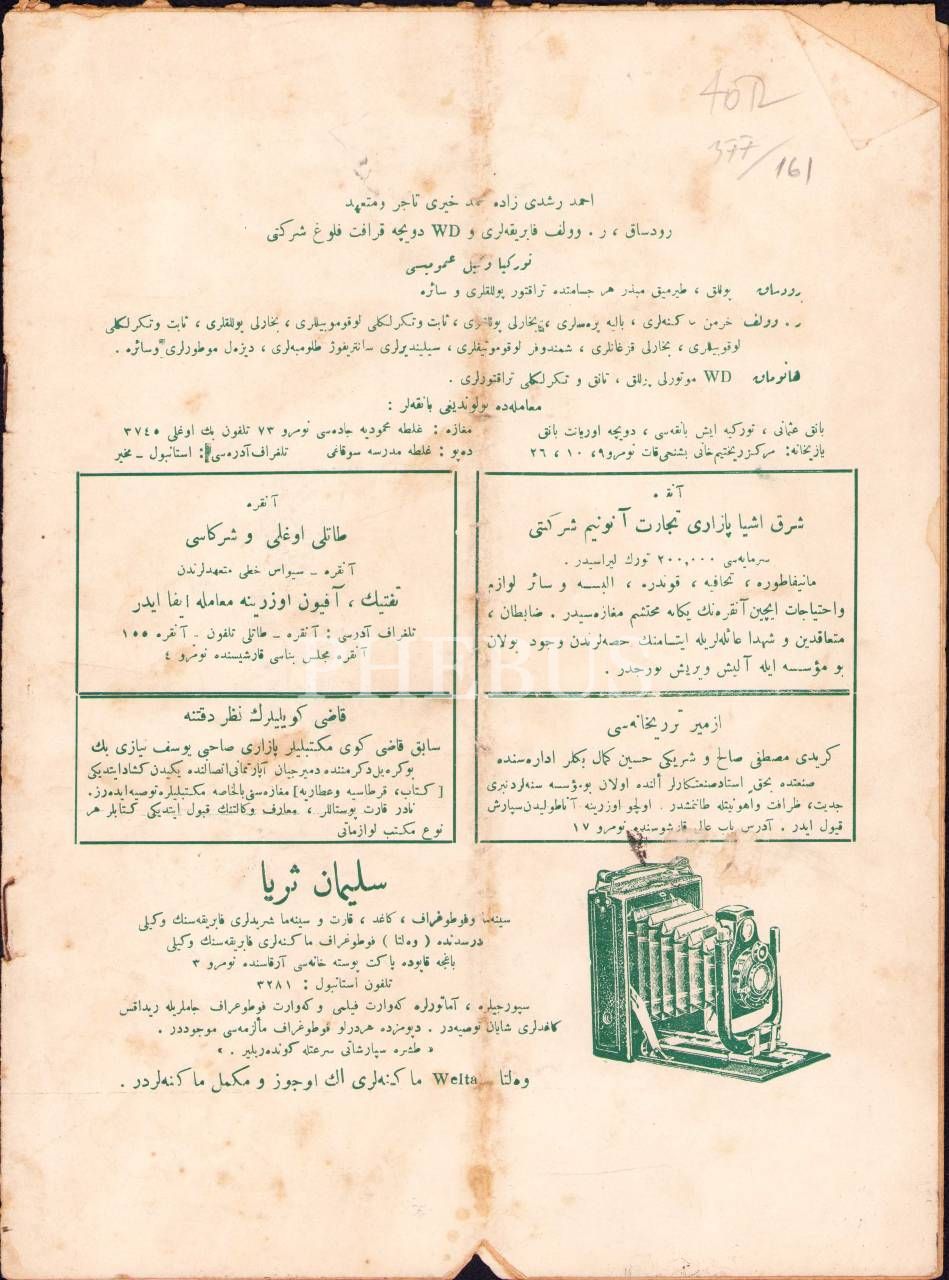 40TL
377/161
احمد رشدی زاده محمد خیری تاجر ومتعهد
رودساق ، ر . وولف فابریقه‌لری و WD دویچه قرافت فلوغ شرکتی
تورکیا وکیل عمومیسی
رودساق پوللق ، طیرمیق مبذر هر جسامتده تراقتور پوللقلری و سائره
ر . وولف خرمن ماکنه‌لری ، بالیه پره‌سلری ، بخارلی پوللقلری ، ثابت وتکرلکلی لوقوموبیللری ، بخارلی پوللقلری ، ثابت وتکرلکلی
لوقوبیللری ، بخارلی قزغانلری ، شمندوفر لوقوموتیفلری ، سیلیندیرلری سانتریفوژ طلومبه‌لری ، دیزه‌ل موطورلری وسائره .
هانوماق WD موتورلی پوللق ، تانق و تکرلکلی تراقتورلری .
معامله‌ده بولوندیغی بانقه‌لر :
بانق عثمانی ، تورکیه ایش بانقه‌سی ، دویچه اوریانت بانق
یازیخانه: مرکزریختیم‌خانی بشنجی‌قات نومرو ۹، ۱۰ ، ۲۶
مغازه : غلطه محمودیه جاده‌سی نومرو ۷۳ تلفون بك اوغلی ۳۷٤٥
ده‌پو : غلطه مدرسه سوقاغی تلغراف‌آدره‌سی : استانبول ـ مخیر
آنقره
شرق اشیا پازاری تجارت آنونیم شرکتی
سرمایه‌سی ۲۰۰,۰۰۰ تورك لیراسیدر .
مانیفاطوره ، تحافیه ، قوندره ، البسه و سائر لوازم
واحتیاجات ایچین آنقره‌نك یگانه محتشم مغازه‌سیدر . ضابطان ،
متعاقدین و شهدا عائله‌لریله ایتامنك حصه‌لرندن وجود بولان
بو مؤسسه ایله آلیش ویریش بورجدر .
آنقره
طاتلی اوغلی و شرکاسی
آنقره ـ سیواس خطی متعهدلرندن
تفتیك ، آفیون اوزرینه معامله ایفا ایدر
تلغراف آدرسی : آنقره ـ طاتلی تلفون ـ آنقره ۱٥٥
آنقره مجلس بناسی قارشیسنده نومرو ٤
ازمیر ترزیخانه‌سی
کریدی مصطفی صالح و شریکی حسین کمال بکلر اداره‌سنده
صنعتده بحق استادصنعتکارلر ألنده اولان بومؤسسه سنه‌لردنبری
جدیت، ظرافت واهونیتله طانمشدر . اولچو اوزرینه آناطولیدن‌سپارش
قبول ایدر . آدرس باب عالی قارشوسنده نومرو ۱۷
قاضی کویلیلرك نظر دقتنه
سابق قاضی کوی مکتبلیلر پازاری صاحبی یوسف نیازی بك
بوکره‌یل‌دکرمننده دمیرجیان آپارتمانی‌اتصالنده یکیدن‌کشادایتدیکی
[ کتاب، قرطاسیه وعطاریه] مغازه‌سنی‌بالخاصه مکتبلیلره‌توصیه‌ایده‌رز.
نادر قارت پوستاللر ، معارف وکالتنك قبول ایتدیکی کتابلر هر
نوع مکتب لوازماتی
سلیمان ثریا
سینه‌ما وفوطوغراف ، کاغد ، قارت و سینه‌ما شریدلری فابریقه‌سنك وکیلی
درسدنده ( وه‌لتا ) فوطوغراف ماکنه‌لری فابریقه‌سنك وکیلی
باغجه قاپوده پاکت پوسته خانه‌سی آرقاسنده نومرو ۳
تلفون استانبول : ۳۲۸۱
سپورجیلره ، آماتورلره که‌وارت فیلمی و که‌وارت فوطوغراف جاملریله ریداقس
کاغدلری شایان توصیه‌در . دپومزده هردرلو فوطوغراف مألزمه‌سی موجوددر .
« طشره سپارشاتی سرعتله کوندریلیر . »
وه‌لتا Welta ماکنه‌لری اك اوجوز و مکمل ماکنه‌لردر .
PHEBUS